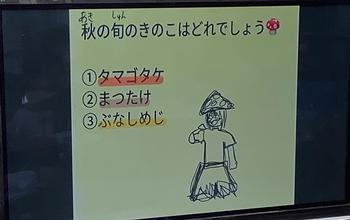 秋の旬のきのこはどれでしょう🍄
①タマゴタケ
②まつたけ
③ぶなしめじ